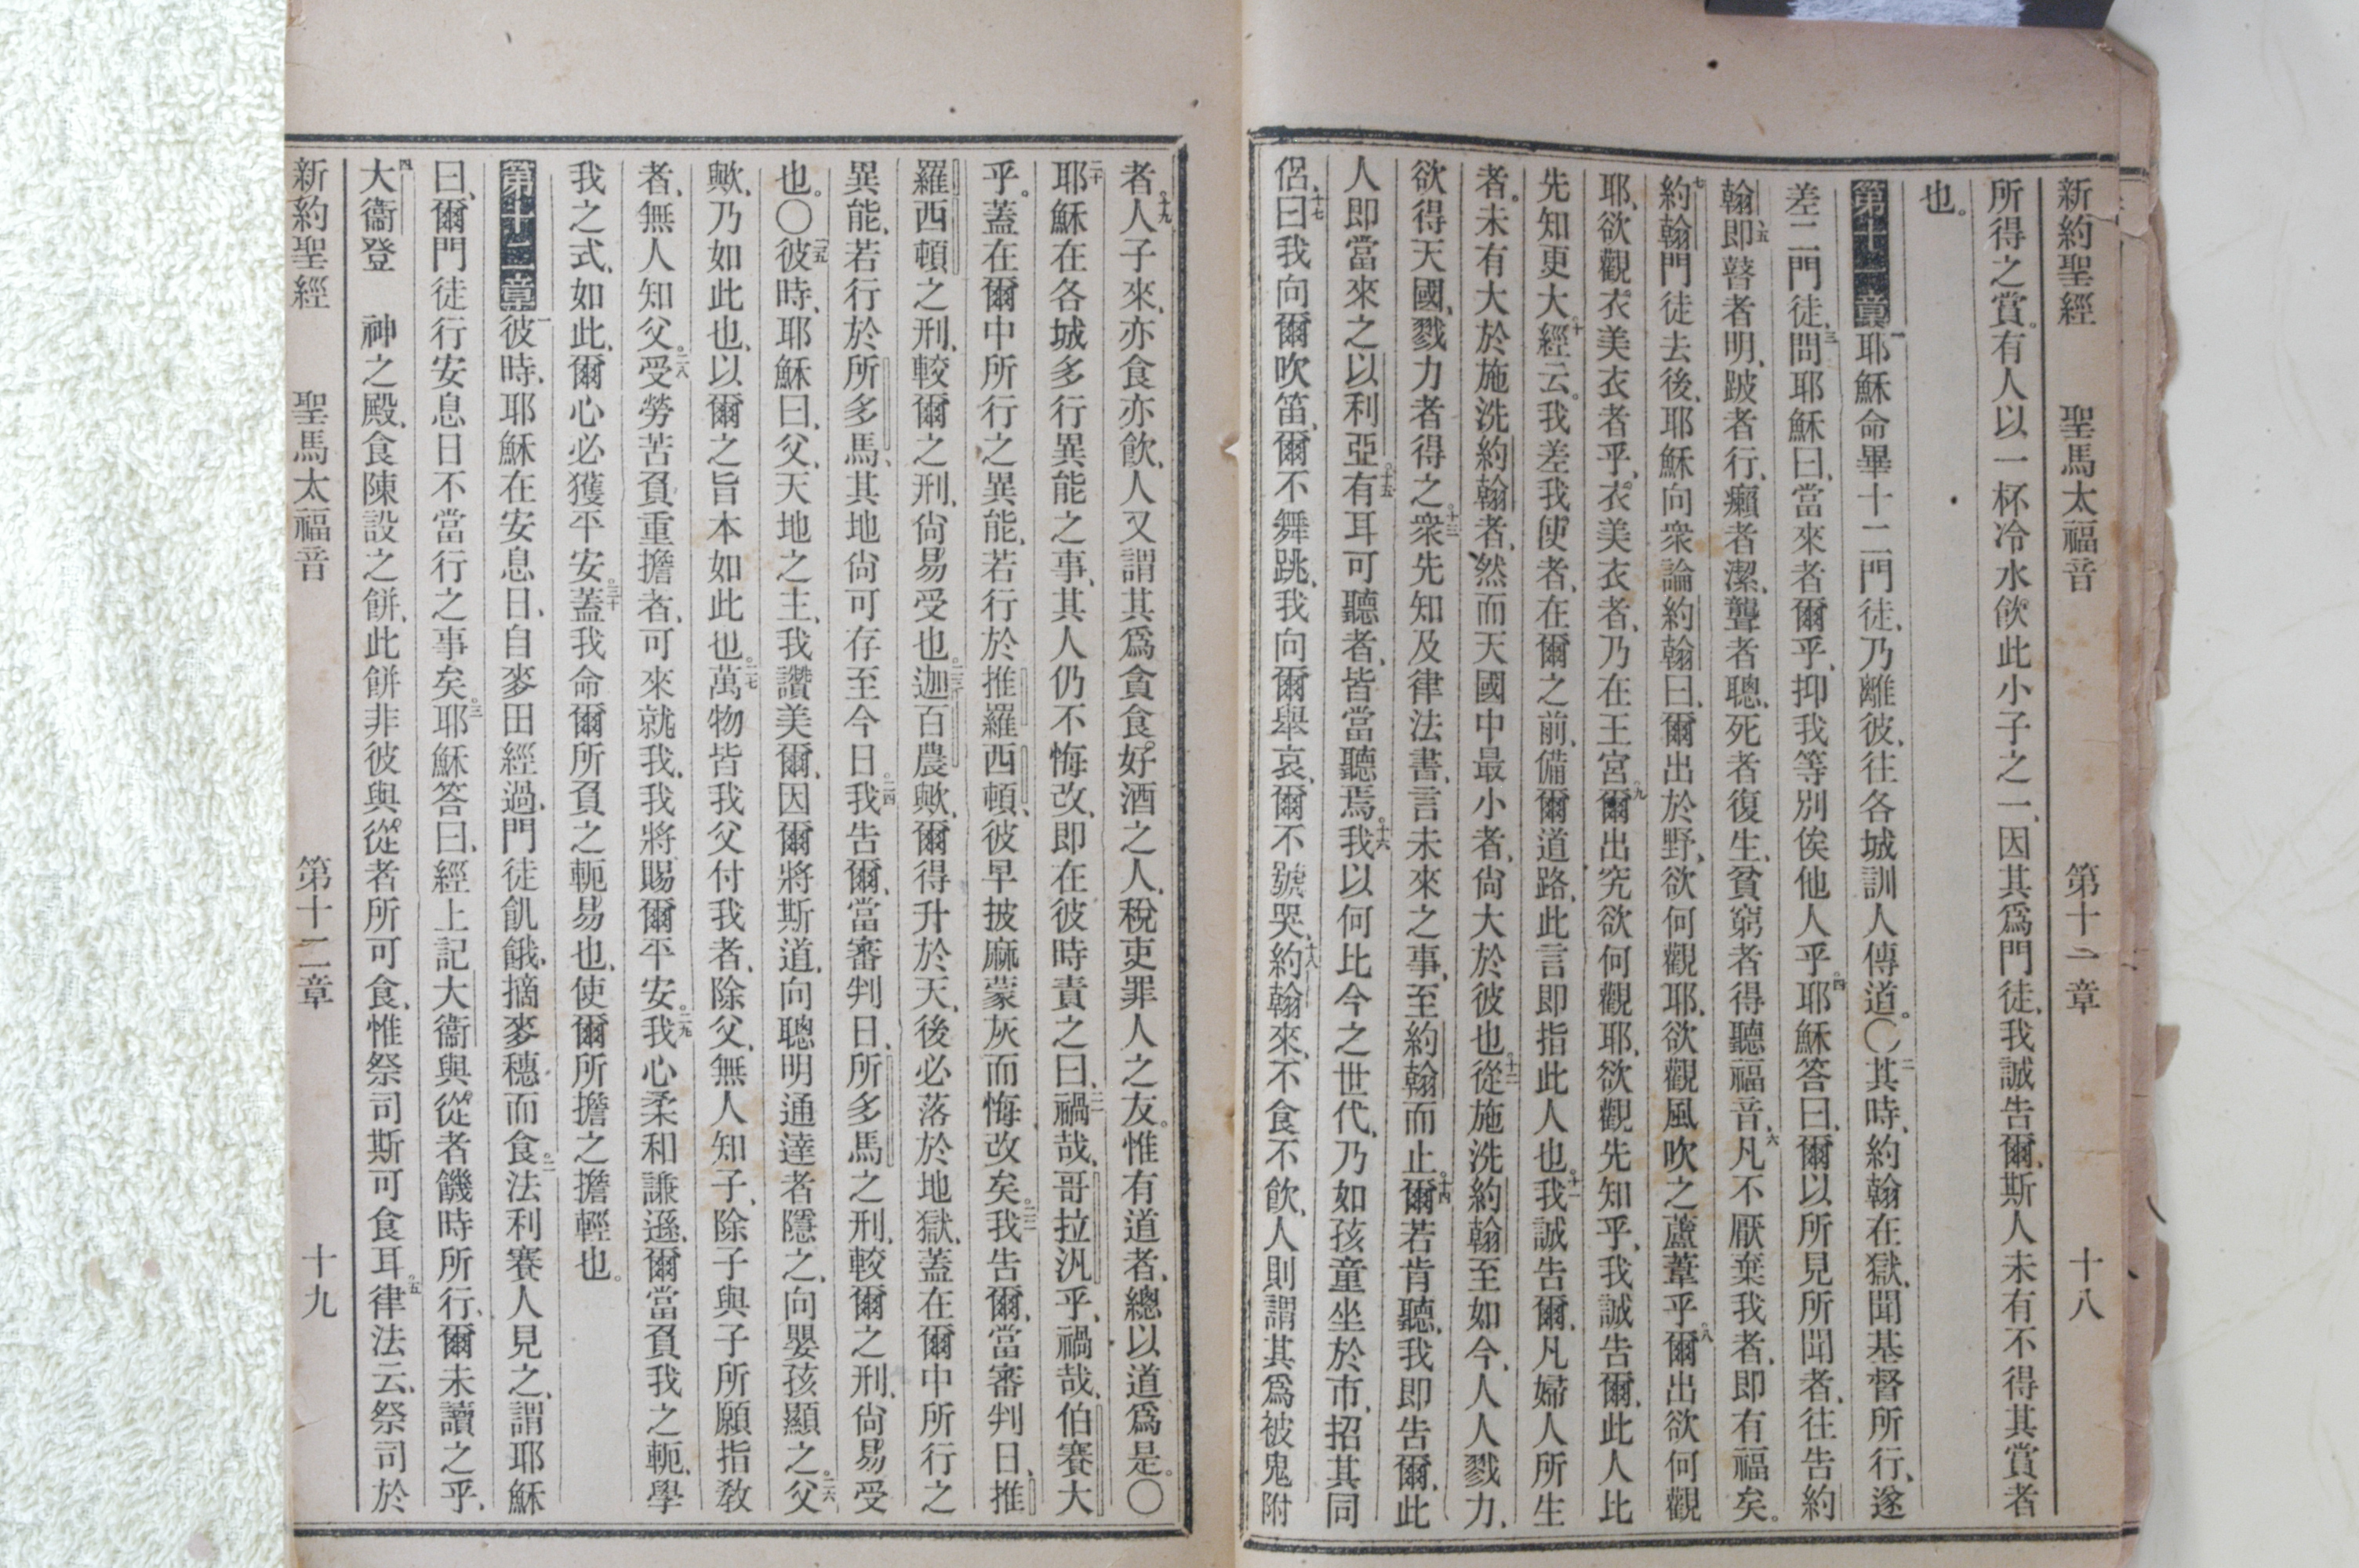 新約聖經　聖馬太福音　第十一章　十八
所得之賞。有人以一杯冷水飲此小子之一、因其爲門徒、我誠告爾、斯人未有不得其賞者
也。
第十一章 一耶穌命畢十二門徒、乃離彼、往各城訓人傳道。〇二其時、約翰在獄、聞基督所行、遂
差二門徒、三問耶穌曰、當來者爾乎、抑我等別俟他人乎。四耶穌答曰、爾以所見所聞者、往告約
翰、五即瞽者明、跛者行、癩者潔、聾者聰、死者復生、貧窮者得聽福音、六凡不厭棄我者、即有福矣。
七約翰門徒去後、耶穌向衆論約翰曰、爾出於野、欲何觀耶、欲觀風吹之蘆葦乎。八爾出欲何觀
耶、欲觀衣美衣者乎、衣美衣者、乃在王宮。九爾出究欲何觀耶、欲觀先知乎、我誠告爾、此人比
先知更大。十經云。我差我使者、在爾之前、備爾道路、此言即指此人也。十一我誠告爾、凡婦人所生
者。未有大於施洗約翰者、然而天國中最小者、尙大於彼也。十二從施洗約翰至如今、人人戮力、
欲得天國、戮力者得之。十三衆先知及律法書、言未來之事、至約翰而止。十四爾若肯聽、我即告爾、此
人即當來之以利亞。十五有耳可聽者、皆當聽焉。十六我以何比今之世代、乃如孩童坐於市、招其同
侶、十七曰我向爾吹笛、爾不舞跳、我向爾舉哀、爾不號哭、十八約翰來、不食不飲、人則謂其爲被鬼附
者。十九人子來、亦食亦飲、人又謂其爲貪食好酒之人、稅吏罪人之友。惟有道者、總以道爲是。〇
二十耶穌在各城多行異能之事、其人仍不悔改、即在彼時責之曰、二一禍哉、哥拉汎乎、禍哉、伯賽大
乎。蓋在爾中所行之異能、若行於推羅西頓、彼早披麻蒙灰而悔改矣。二二我告爾、當審判日、推
羅西頓之刑、較爾之刑、尙易受也。二三迦百農歟、爾得升於天、後必落於地獄、蓋在爾中所行之
異能、若行於所多馬、其地尙可存至今日。二四我告爾、當審判日、所多馬之刑、較爾之刑、尙易受
也。〇二五彼時、耶穌曰、父、天地之主、我讚美爾、因爾將斯道、向聰明通達者隱之、向嬰孩顯之。二六父
歟、乃如此也、以爾之旨本如此也。二七萬物皆我父付我者、除父、無人知子、除子與子所願指敎
者、無人知父。二八受勞苦負重擔者、可來就我、我將賜爾平安。二九我心柔和謙遜、爾當負我之軛、學
我之式、如此、爾心必獲平安。三十蓋我命爾所負之軛易也、使爾所擔之擔輕也。
第十二章 一彼時、耶穌在安息日、自麥田經過、門徒飢餓、摘麥穗而食。二法利賽人見之、謂耶穌
曰、爾門徒行安息日不當行之事矣。三耶穌答曰、經上記大衞與從者饑時所行、爾未讀之乎、
四大衞登　神之殿、食陳設之餅、此餅非彼與從者所可食、惟祭司斯可食耳。五律法云、祭司於
新約聖經　聖馬太福音　第十二章　十九